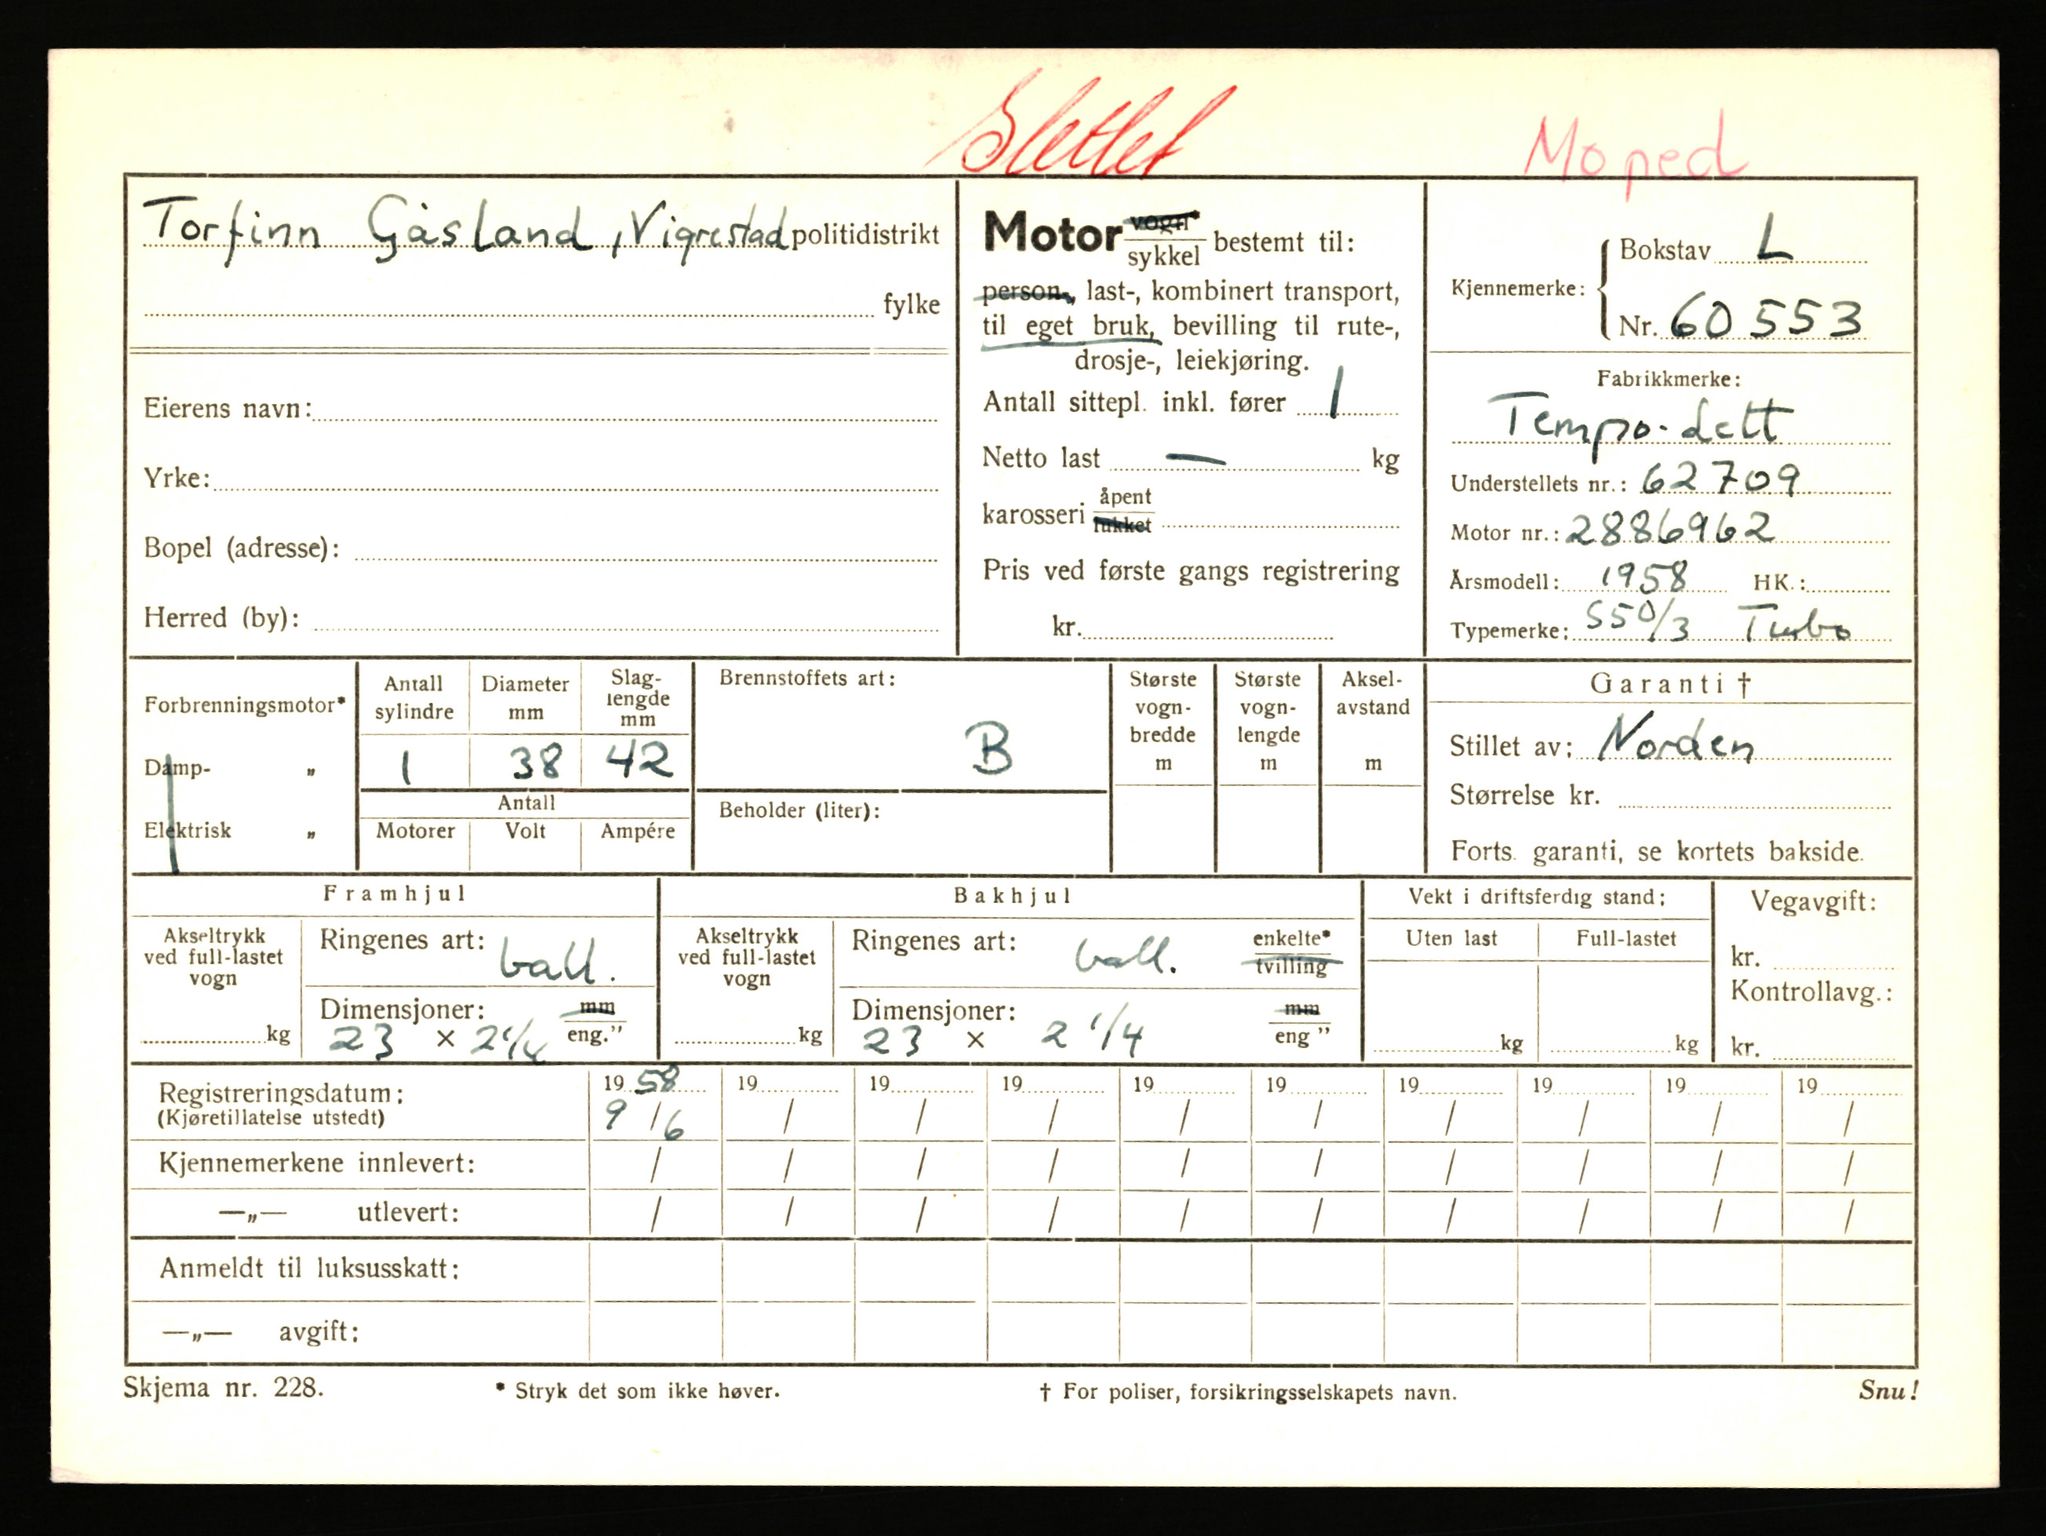 Slettet
Moped
Torfinn Gåsland, Vigrestad politidistrikt
fylke
Eierens navn:
Yrke:
Bopel (adresse):
Herred (by):
Motor vogn*
sykkel bestemt til:
person-, last-, kombinert transport,
til eget bruk, bevilling til rute-,
drosje-, leiekjøring.
Antall sittepl. inkl. fører 1
Netto last — kg
karosseri åpent
lukket
Pris ved første gangs registrering
kr.
Kjennemerke: Bokstav L
Nr. 60553
Fabrikkmerke:
Tempo-lett
Understellets nr.: 62709
Motor nr.: 2886962
Årsmodell: 1958 HK.:
Typemerke: S50/3 Turbo
Forbrenningsmotor*
Damp- „
Elektrisk „
Antall sylindre
Diameter mm
Slag-lengde mm
1 38 42
Antall
Motorer Volt Ampére
Brennstoffets art:
B
Beholder (liter):
Største vogn-bredde m
Største vogn-lengde m
Aksel-avstand m
Garanti †
Stillet av: Norden
Størrelse kr.
Forts. garanti, se kortets bakside.
Framhjul
Akseltrykk ved full-lastet vogn
kg
Ringenes art: ball.
Dimensjoner: mm
23 × 2 1/4 eng."
Bakhjul
Akseltrykk ved full-lastet vogn
kg
Ringenes art: ball. enkelte*
tvilling
Dimensjoner: mm
23 × 2 1/4 eng "
Vekt i driftsferdig stand:
Uten last Full-lastet
kg kg
Vegavgift:
kr.
Kontrollavg.:
kr.
Registreringsdatum: 19 58 19 19 19 19 19 19 19 19 19
(Kjøretillatelse utstedt) 9/6 / / / / / / / / /
Kjennemerkene innlevert: / / / / / / / / / /
—„— utlevert: / / / / / / / / / /
Anmeldt til luksusskatt:
—„— avgift:
Skjema nr. 228. * Stryk det som ikke høver. † For poliser, forsikringsselskapets navn. Snu!